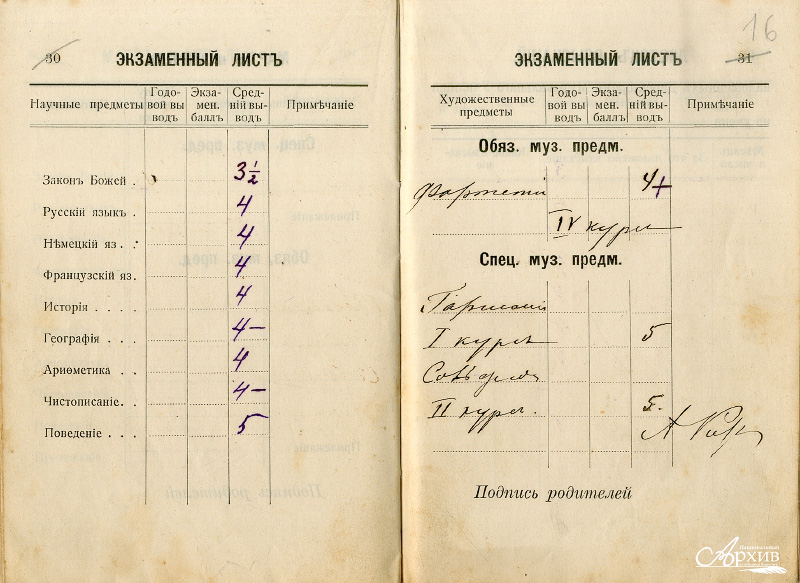 30 ЭКЗАМЕННЫЙ ЛИСТЪ
Научные предметы Годовой выводъ Экзамен. баллъ Средній выводъ Примѣчаніе
Законъ Божей . 3 1/2
Русскій языкъ . 4
Нѣмецкій яз. . 4
Французскій яз. 4
Исторія . . . . 4
Географія . . . 4–
Ариѳметика . . 4
Чистописаніе. . 4–
Поведеніе . . . 5
16
ЭКЗАМЕННЫЙ ЛИСТЪ 31
Художественные предметы Годовой выводъ Экзамен. баллъ Средній выводъ Примѣчаніе
Обяз. муз. предм.
4+
IV курсъ
Спец. муз. предм.
I курсъ 5
II курсъ. 5.
Подпись родителей
Национальный
Архив